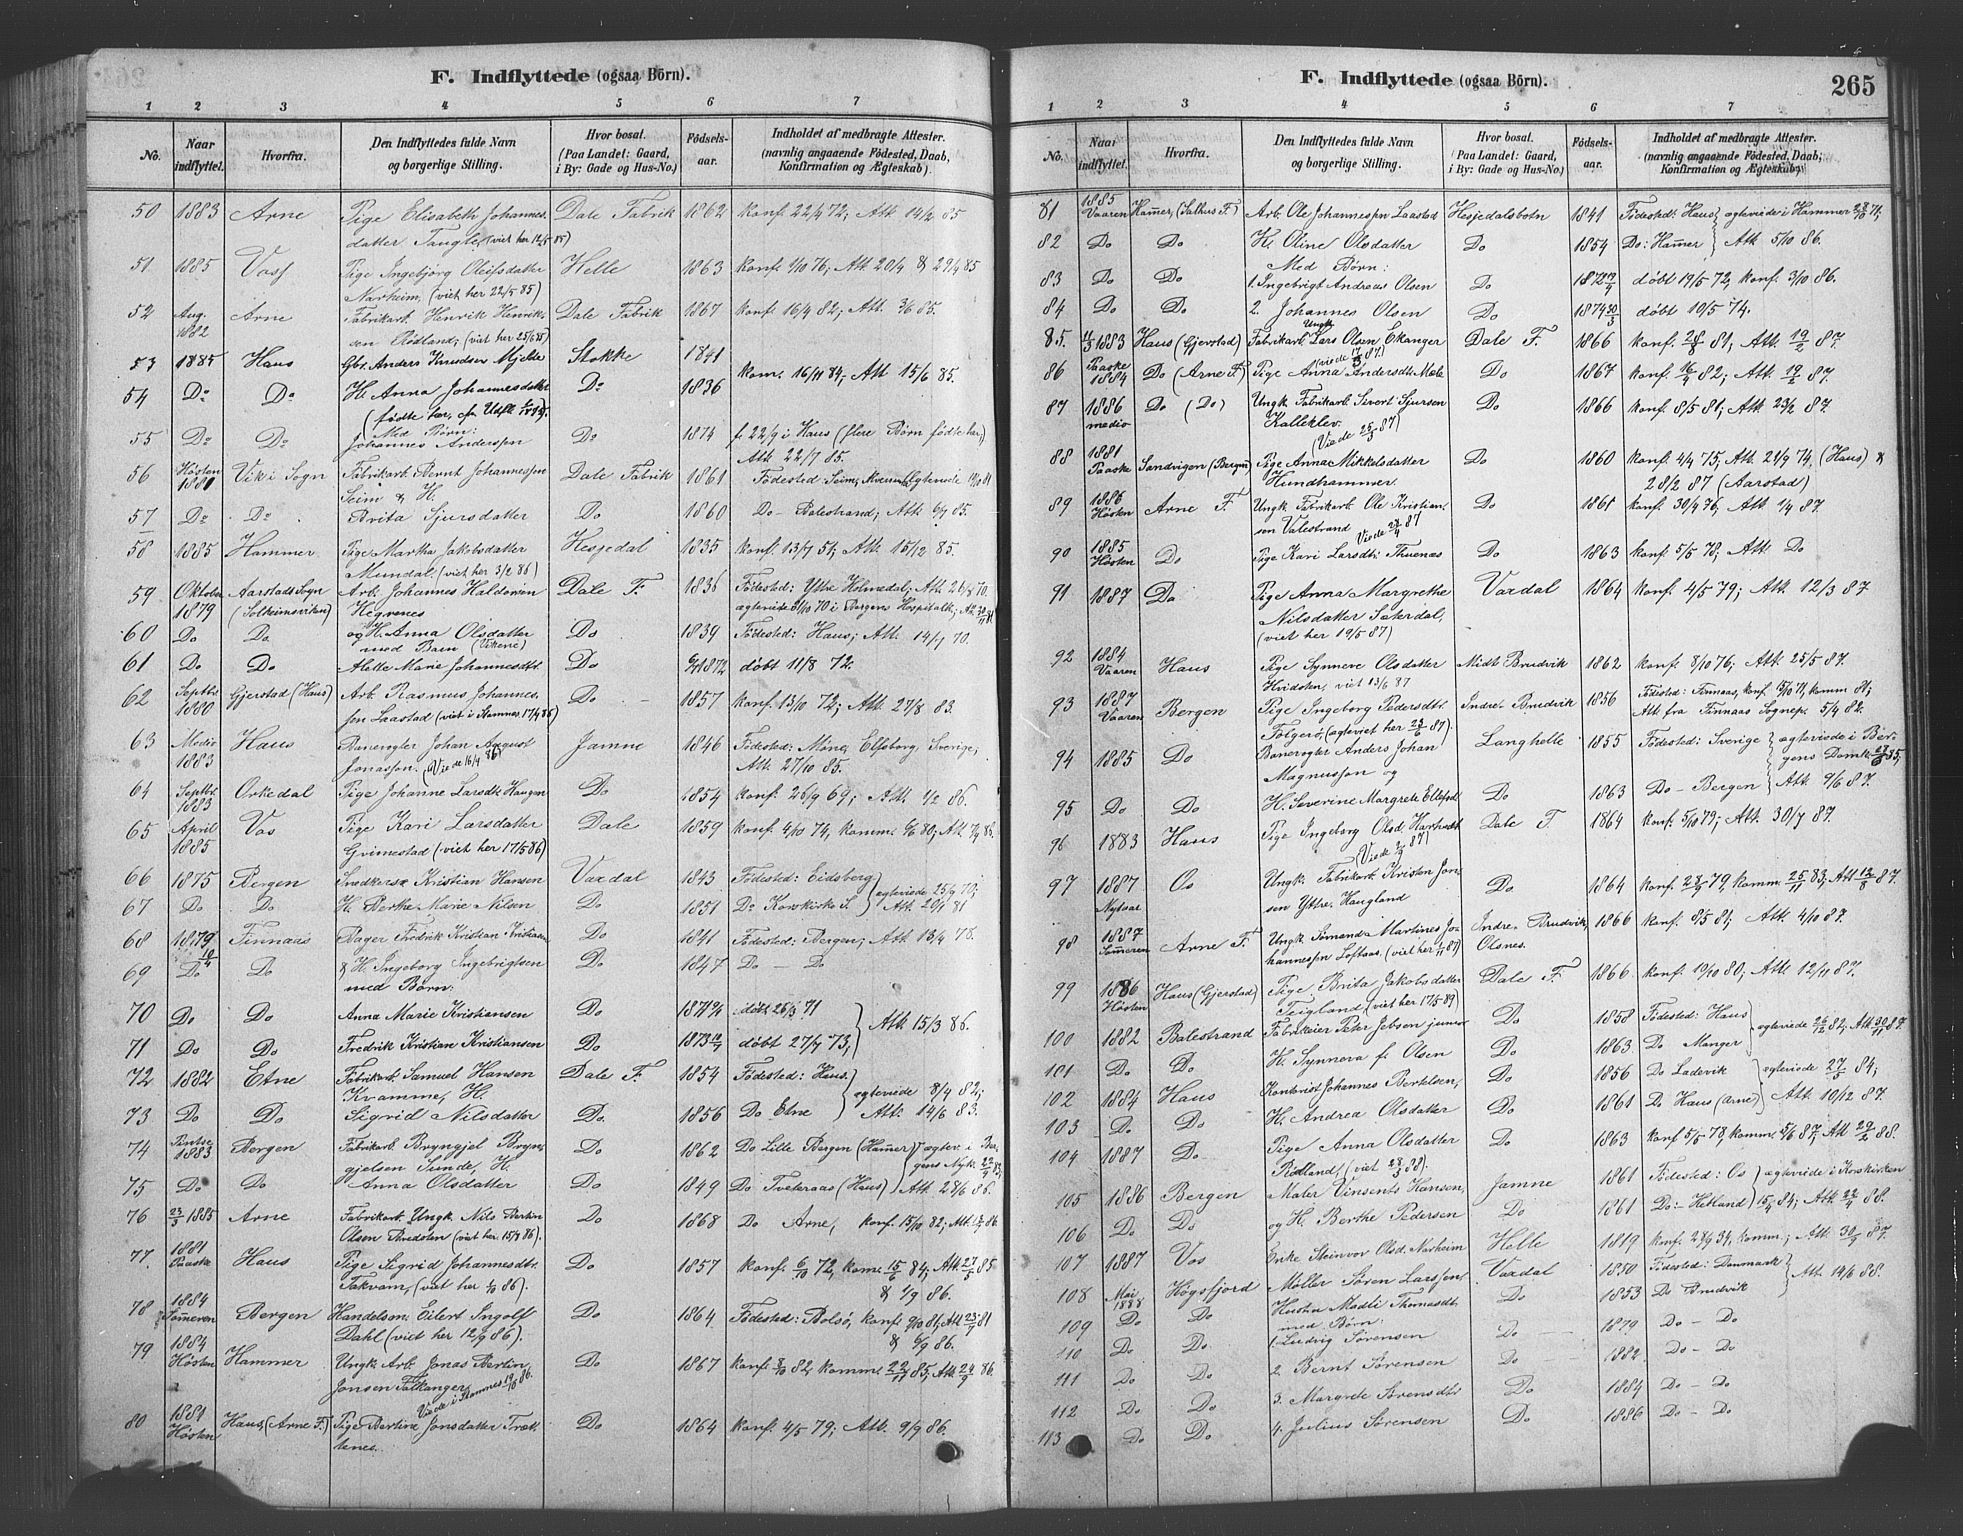 F. Indflyttede (ogsaa Börn).
1 2 3 4 5 6 7
No. Naar indflyttet. Hvorfra. Den Indflyttedes fulde Navn og borgerlige Stilling. Hvor bosat. (Paa Landet: Gaard, i By: Gade og Hus-No.) Fødselsaar. Indholdet af medbragte Attester. (navnlig angaaende Födested, Daab, Konfirmation og Ægteskab).
50 1883 Arne Pige Elisabeth Johannes- Dale Fabrik 1862 konf. 22/4 72; Att. 14/2 85
datter Tangle, (viet her 12/5 85)
51 1885 Voss Pige Ingebjörg Oleifsdatter Helle 1863 konf. 1/10 76; Att. 20/4 & 29/4 85
Narheim, (viet her 22/5 85)
52 Aug. 1882 Arne Fabrikarb. Henrik Henrik- Dale Fabrik 1867 konf. 16/4 82; Att. 3/6 85.
sen Rödland, (viet her 25/6 85)
53 1885 Haus Gbr. Anders Knudsen Mjelde Stokke 1841
54 Do Do H. Anna Johannesdatter Do 1836 kom. 16/11 84; Att. 15/6 85.
(födte her,
Med Börn:
55 Do Do Johannes Andersen Do 1874 f. 22/9 i Haus (flere Börn födte her,)
Att. 22/7 85.
56 Hösten 1881 Vik i Sogn Fabrikarb. Bernt Johannessen Dale Fabrik 1861 Födested Seim, Ægteviede 19/10 81
Seim & H.
57 Do Do Brita Sjursdatter Do 1860 Do - Balestrand; Att. 6/7 85.
58 1885 Hammer Pige Martha Jakobsdatter Hesjedal 1835 konf. 13/7 51; Att. 15/12 85.
Mundal. (viet her 3/2 86)
59 Oktober 1879 Aarstads Sogn (Solheimsviken) Arb. Johannes Haldorsen Dale F. 1836 Födested: Ytre Holmedal; Att. 26/8 70.
Hegrenes ægteviede 30/10 70 i Bergens Hospitalk.,
60 Do Do og H. Anna Olsdatter Do 1839 Födested: Haus; Att. 14/7 70.
med Barn (Vikene)
61 Do Do Alette Marie Johannesdtr. Do 1872 döbt 11/8 72.
62 Septbr. 1880 Gjerstad (Haus) Arb. Rasmus Johannes- Do 1857 konf. 13/10 72; Att. 27/8 83.
sen Laastad (viet i Stamnes 17/4 86)
63 Medio 1883 Haus Banevogter Johan August Jamne 1846 Födested: Möne, Elfsborg, Sverige;
Jonassen. (Viede 16/4 86) Att. 27/10 85.
64 Septbr. 1883 Orkedal Pige Johanne Larsdtr. Haugen Do 1854 konf. 26/9 69; Att. 1/2 86.
65 April 1885 Vos Pige Kari Larsdatter Dale 1859 konf. 4/10 74, komm. 6/6 80; Att. 86.
Grimestad (viet her 17/5 86)
66 1875 Bergen Snedkersv. Kristian Hansen Vaxdal 1843 Födested: Eidsberg ægteviede 25/6 70;
67 Do Do H. Berthe Marie Nilsen Do 1851 Do Korskirke S. Att. 20/1 81
68 1879 Finnaas Bager Fredrik Kristian Kristiansen Do 1841 Födested: Bergen; Att. 13/4 78.
69 10/4 Do Do & H. Ingeborg Ingebrigtsen Do 1847 Do — Do
med Börn:
70 Do Do Anna Marie Kristiansen Do 1871 döbt 26/3 71 Att. 15/3 86.
71 Do Do Fredrik Kristian Kristiansen Do 1873 döbt 27/7 73;
72 1882 Etne Fabrikarb. Samuel Hansen Dale F. 1854 Födested: Haus. ægteviede 8/4 82;
Kvamme, H.
73 Do Do Sigrid Nilsdatter Do. 1856 Do Etne Att. 14/6 83.
74 Pintse 1883 Bergen Fabrikarb. Bryngjel Bryn- Do 1862 Do Lille Bergen (Ham̄er) ægtev. i Ber-
gjelsen Sunde, H. gens Nyk.
75 Do Do Anna Olsdatter Do 1849 Do Tveteraas (Haus) Att. 28/6 86.
76 23/3 1885 Arne Fabrikarb. Ungk. Nils Bertin Do 1868 Do Arne, konf. 15/10 82; Att. 86
Olsen Bredsten (viet her 15/9 86).
77. 1881 Paaske Haus Pige Sigrid Johannesdtr. Do 1857 konf. 6/10 72, kom. 15/6 84; Att. 27/5 85
Takvam, (viet her 86). & 1/9 86.
78 1884 Som̄eren Bergen Handelsm. Eilert Ingolf Do 1864 Födested: Bolsö, konf. 9/10 81; Att. 23/7 81
Dahl (viet her 12/9 86). & 6/9 86.
79 1884 Hösten Hammer Ungk. Arb. Jonas Bertin Do 1867 konf. 8/10 82, komm. 22/11 85; Att. 24/9 86.
Jonsen Falkanger. Viede i Stamnes 19/9 86.
80 1881 Hösten Haus, (Arne F.) Pige Bertine Jonsdatter Træt- Do 1864 konf. 4/5 79; Att. 9/9 86.
tenes.
F. Indflyttede (ogsaa Börn). 265
1 2 3 4 5 6 7
No. Naar indflyttet. Hvorfra. Den Indflyttedes fulde Navn og borgerlige Stilling. Hvor bosat. (Paa Landet: Gaard, i By: Gade og Hus-No.) Födselsaar. Indholdet af medbragte Attester. (navnlig angaaende Födested, Daab, Konfirmation og Ægteskab).
81 1885 Vaaren Ham̄er, (Salhus F.) Arb. Ole Johannessen Laastad Hesjedalsbotn 1841 Födested: Haus ægteviede i Hammer 71;
82 Do Do H. Oline Olsdatter Do 1854 Do: Ham̄er Att. 5/10 86.
Med Börn:
83 Do Do 1. Ingebrigt Andreas Olsen Do 1872 döbt 19/5 72, konf. 3/10 86.
84 Do Do 2. Johannes Olsen Do 1874 30/3 döbt 10/5 74.
85. 1883 Haus (Gjerstad) Fabrikarb. Ungk. Lars Olsen Ekanger Dale F. 1866 konf. 28/8 81; Att. 19/2 87.
86 Paaske 1884 Do (Arne F.) Pige Anna Andersdt. Mæle Do 1867 konf. 16/4 82; Att. 19/2 87.
87 1886 medio Do (Do) Ungk. Fabrikarb. Sivert Sjursen Do 1866 konf. 8/5 81; Att. 23/2 87.
Kalleklev. (Viede 25/3 87)
88 1881 Paaske Sandvigen (Bergen) Pige Anna Mikkelsdatter Do 1860 konf. 4/4 75; Att. 21/9 74, (Haus) &
Hundhammer. 28/2 87 (Aarstad)
89 1886 Hösten Arne F. Ungk. Fabrikarb. Ole Kristian- Do 1861 konf. 30/4 76; Att. 1/4 87.
sen Valestrand Viede 24/4 87
90 1885 Hösten Do Pige Kari Larsdt. Thuenæs Do 1863 konf. 5/5 78, Att. Do
91 1887 Do Pige Anna Margrethe Vaxdal 1864 konf. 4/5 79; Att. 12/3 87
Nilsdatter Sæterdal,
(viet her 19/5 87)
92 1884 Vaaren Haus Pige Synneve Olsdatter Midt Brudvik 1862 konf. 8/10 76; Att. 25/5 87.
Hvidsten, viet 13/6 87
93 1887 Vaaren Bergen Pige Ingeborg Pedersdtr. Indre Brudvik 1856 Födested: Finnaas, konf. 15/10 71, komm. 81;
Folgerö, (ægteviet her 23/6 87). Att. fra Finnaas Sognep. 5/4 82.
94 1885 Do Banevogter Anders Johan Langhelle 1855 Födested: Sverige ægteviede i Ber-
Magnussen og gens Domk. 85;
95 Do Do H. Severine Margrete Ellefsdt. Do 1863 Do - Bergen Att. 9/6 87.
96 1883 Haus Pige Ingeborg Olsd. Dale F. 1864 konf. 5/10 79; Att. 30/7 87.
(Viede 87)
97 1887 Nytaar Os Ungk. Fabrikarb. Kristen Jon- Do 1864 konf. 28/9 79, komm. 25/11 83; Att. 13/8 87.
sen Yttre Haugland
98 1887 Som̄eren Arne F. Ungk. Simenda Martines Jo- Indre Brudvik, 1866 konf. 8/5 81; Att. 4/10 87.
hannessen Loftaas. (viet her 87) Olsnes.
99 1886 Hösten Haus (Gjerstad) Pige Brita Jakobsdatter Dale F. 1866 konf. 10/10 80; Att. 12/11 87.
Teigland, (viet her 17/5 89)
100 1882 Balestrand Fabrikeier Peter Jebsen junior Do 1858 Födested: Haus ægteviede 26/2 82, Att. 30/11 87.
101 Do Do H. Synneva f. Olsen Do 1863 Do Manger
102 1884 Haus Kontorist Johannes Bertelsen, Do 1856 Do Ladevik ægteviede 27/5 84;
103 Do Do H. Andrea Olsdatter Do 1861 Do Haus (Arne) Att. 10/12 87.
104 1887 Do Pige Anna Olsdatter Do 1863 konf. 5/5 78, komm. 5/6 87; Att. 29/2 88.
Rödland (viet 28/3 88).
105 1886 Bergen Maler Vinsents Hansen, Jamne 1861 Födested: Os ægteviede i Korskirken
106 Do Do og H. Berthe Pedersen Do 1861 Do: Hetland 15/4 84; Att. 22/4 88.
107 1887 Vos Enke Steinvor Olsd. Narheim Helle 1819 konf. 28/9 34, komm.; Att. 30/9 87.
108 Mai 1888 Högsfjord Möller Sören Larssen, Vaxdal 1850 Födested: Danmark Att. 14/6 88.
109 Do Do Hustru Madli Thomasdt. Do 1853 Do Brudvik
med Börn:
110 Do Do 1. Ludvig Sörensen Do 1879 Do - Do
111 Do Do 2. Bernt Sörensen Do 1882 Do - Do
112 Do Do 3. Margrete Sörensdtr. Do 1884 Do - Do
113 Do Do 4. Julius Sörensen Do 1886 Do - Do